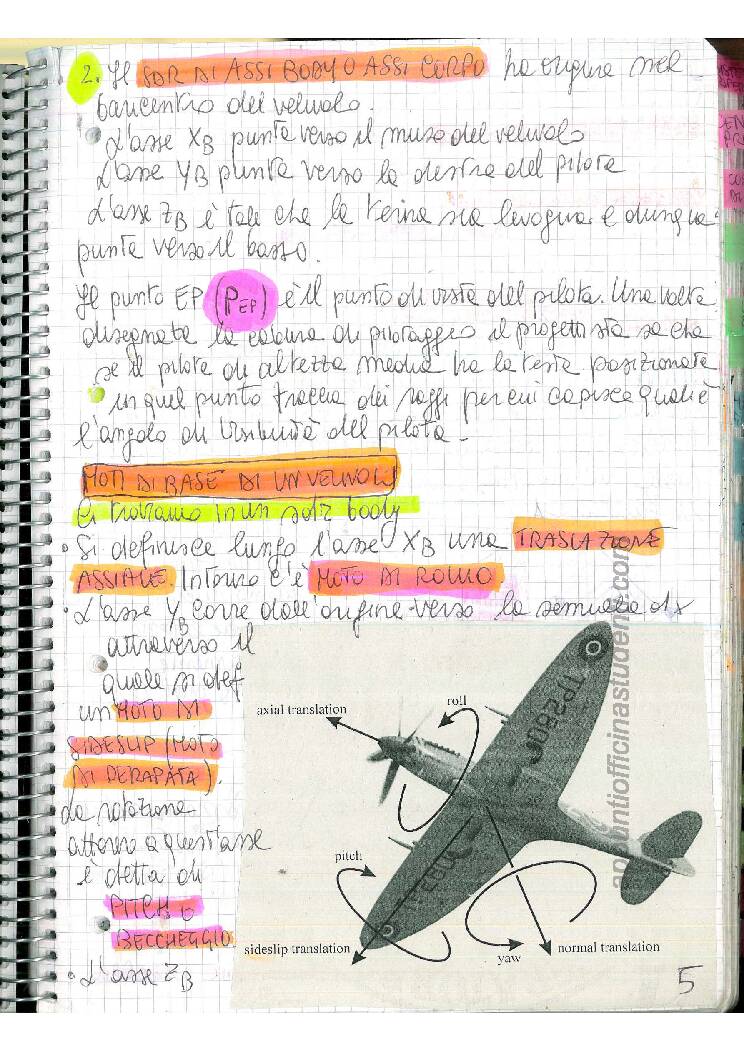 2. Il SDR DI ASSI BODY O ASSI CORPO ha origine nel
baricentro del velivolo.
L'asse XB punta verso il muso del velivolo
L'asse YB punta verso la destra del pilota
L'asse ZB è tale che la terna sia levogira e dunque
punta verso il basso.
Il punto EP (PEP) è il punto di vista del pilota. Una volta
disegnata la cabina di pilotaggio il progettista sa che
se il pilota di altezza media ha la testa posizionata
in quel punto traccia dei raggi per cui capisce qual è
l'angolo di visibilità del pilota.
MOTI DI BASE DI UN VELIVOLO
Ci troviamo in un sdr body
• Si definisce lungo l'asse XB una TRASLAZIONE
ASSIALE. Intorno c'è MOTO DI ROLLIO.
• L'asse YB corre dall'origine verso la semiala dx
attraverso il
quale si def
un MOTO DI
SIDESLIP (MOTO
DI DERAPATA).
La rotazione
attorno a quest'asse
è detta di
PITCH O
BECCHEGGIO.
• L'asse ZB
axial translation
roll
pitch
sideslip translation
yaw
normal translation
appuntiofficinastudenti.com
5